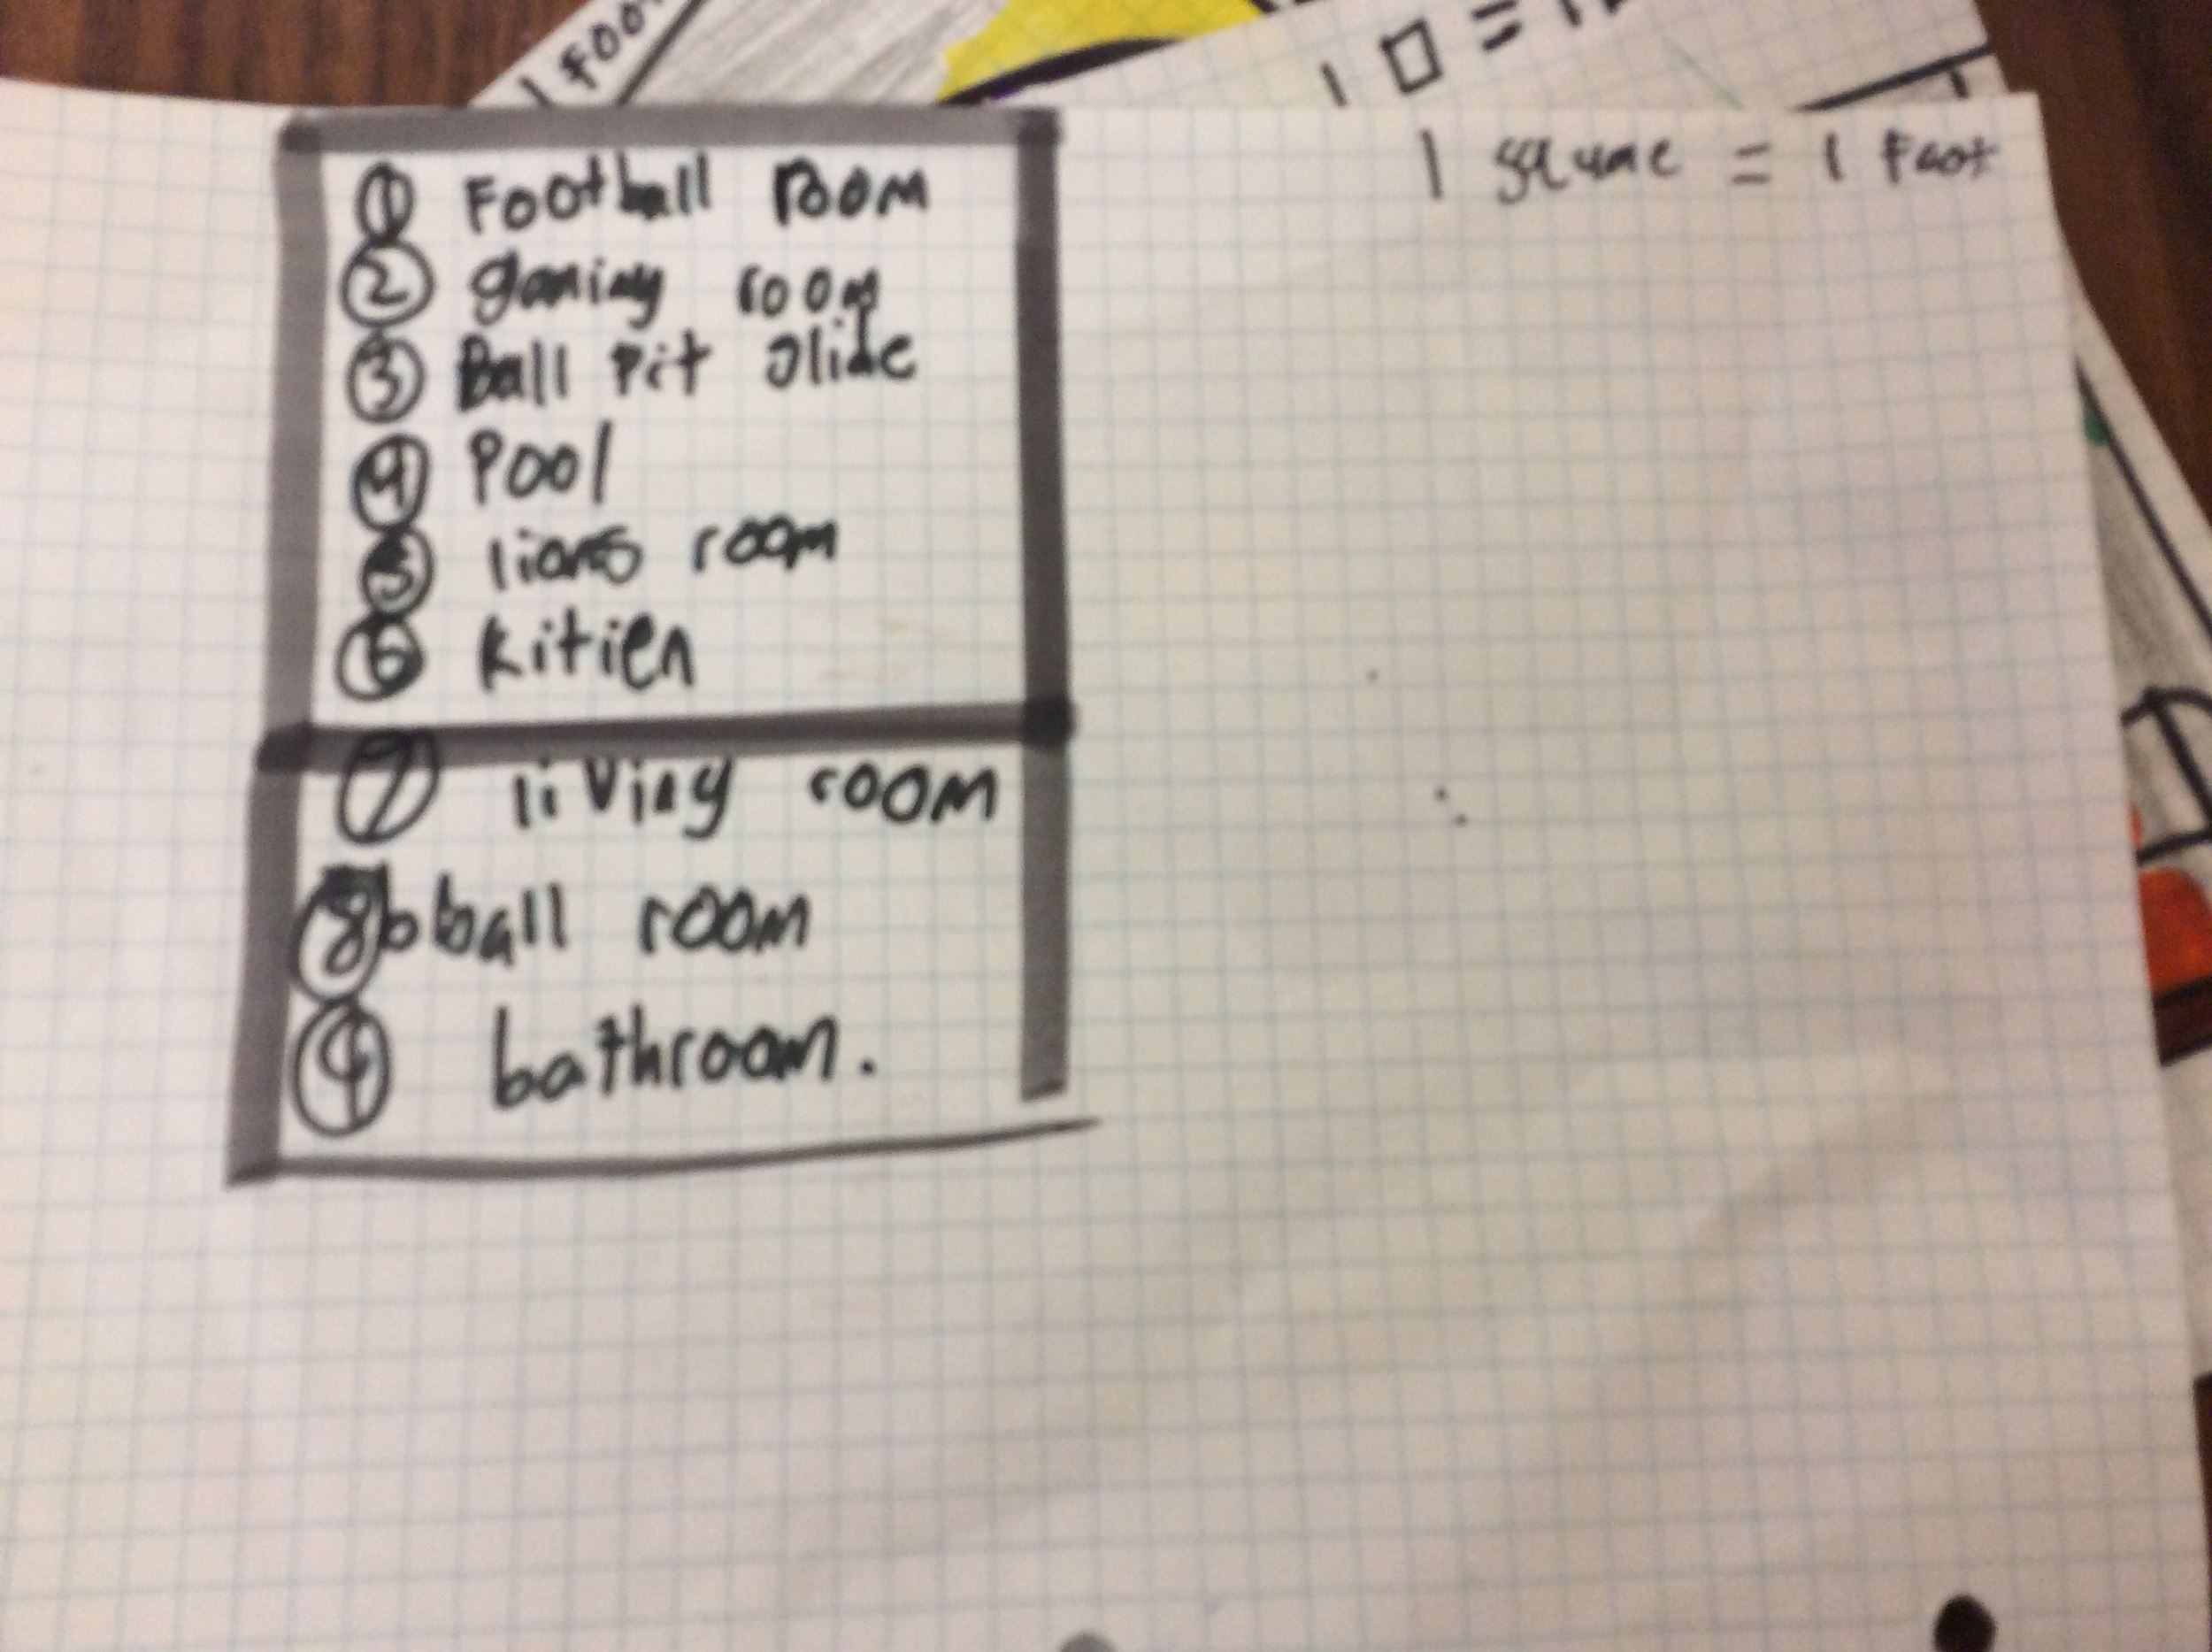 1 FOOT
1 □ = 1
1 square = 1 Foot
① Football room
② gaming room
③ Ball Pit slide
④ Pool
⑤ lions room
⑥ kitien
⑦ living room
⑧ bball room
⑨ bathroom.